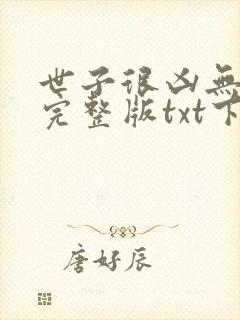 世子很凶無
完整版txt下
唐好辰